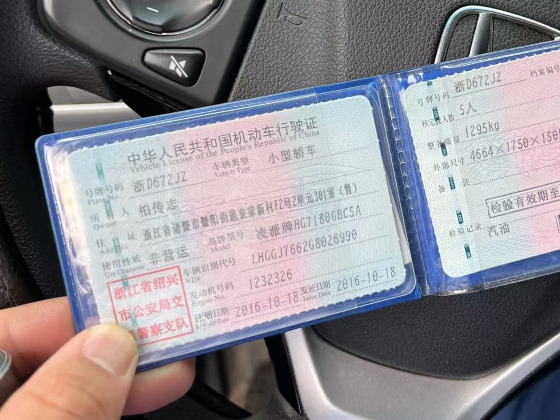 中华人民共和国机动车行驶证
Vehicle License of the People's Republic of China
号牌号码 浙D672JZ 车辆类型 小型轿车
Plate No. Vehicle Type
所有人 柏传志
住址 浙江省诸暨市暨阳街道
使用性质 非营运 品牌型号 凌派牌HG7180GBC5A
Use Character Model
车辆识别代号 LHGGJ7662G8026990
VIN
发动机号码 1232326
Engine No.
注册日期 2016-10-18 发证日期 2016-10-18
Issue Date
浙江省绍兴
市公安局交
警察支队
号牌号码 浙D672JZ 档案编号
核定载人数 5人
整备质量 1295kg
外廓尺寸 4664×1750×150
备注
检验有效期至
检验记录 汽油